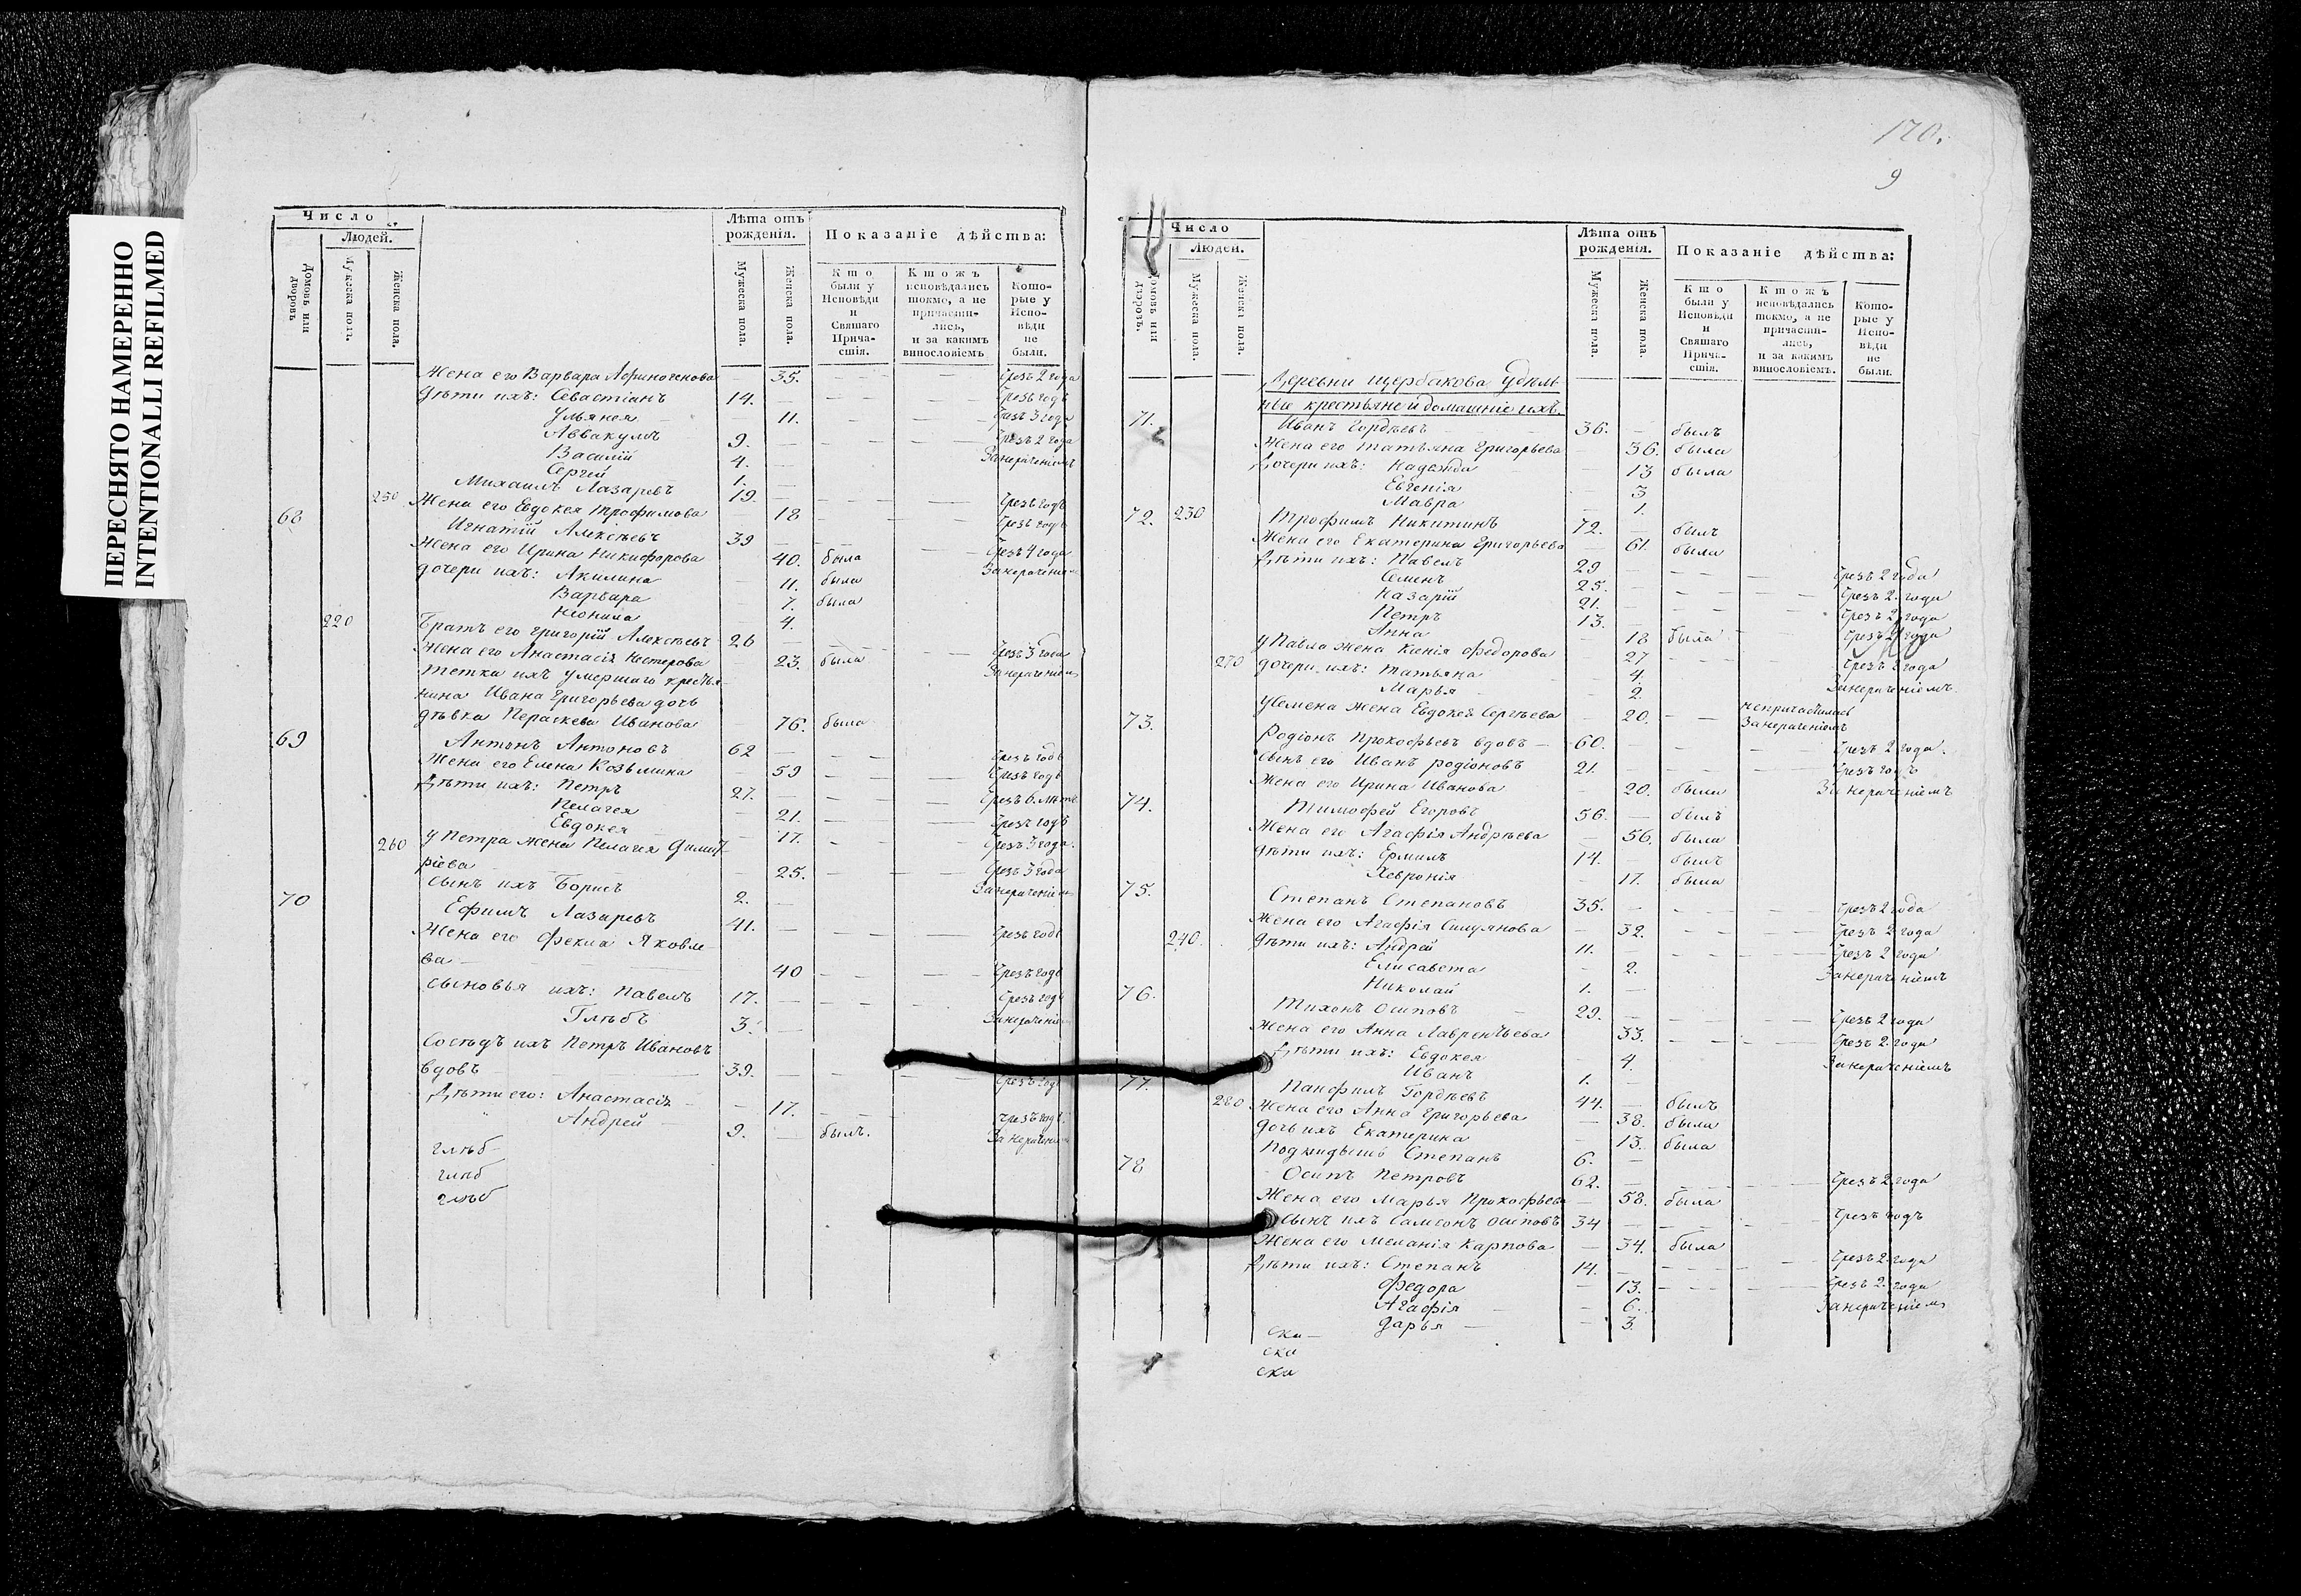 ПЕРЕСНЯТО НАМЕРЕННО
INTENTIONALLI REFILMED
Число
Людей.
Домовъ или дворовъ
Мужеска пола.
Женска пола.
Лѣта отъ рожденія.
Мужеска пола.
Женска пола.
Показаніе дѣйства:
Кто были у Исповѣди и Святаго Причастія.
Ктожъ исповѣдались токмо, а не причастились, и за какимъ винословіемъ
Которые у Исповѣди не были.
Жена его Варвара Афиногенова — 35. — — — Чрезъ 2 года
Дѣти ихъ: Севастіанъ 14. — — — Чрезъ годъ
Ульянея 11. — — — Чрезъ 3 года
Аввакумъ 9. — — — Чрезъ 2 года
Василій 4. — Занерачениемъ
Сергей 1. —
Михаилъ Лазаревъ 19. — — — Чрезъ годъ
250 Жена его Евдокея Трофимова — 18 — — — Чрезъ годъ
68 Игнатій Алексѣевъ 39 — — — Чрезъ 4 года
Жена его Ирина Никифорова 40. была
дочери ихъ: Акилина 11. была
Варвара 7. была
Неонила 4.
220 Братъ его Григорій Алексѣевъ 26 — — — Чрезъ 3 года
Жена его Анастасія Нестерова 23. была
Тетка ихъ умершаго крестья-
нина Ивана Григорьева дочь
дѣвка Пераскева Иванова 76. была
69 Антонъ Антоновъ 62 — — — Чрезъ годъ
Жена его Елена Козьмина — 59 — — — Чрезъ годъ
Дѣти ихъ: Петръ 27. — — — Чрезъ 6. лѣтъ
Пелагея 21. — — Чрезъ годъ
Евдокея 17. — — Чрезъ 3 года.
260 У Петра жена Пелагея Димит-
ріева — 25. — — — Чрезъ 3 года
Сынъ ихъ Борисъ 2. —
70 Ефимъ Лазаревъ 41. — — — Чрезъ годъ
Жена его Фекла Яковле
ва — 40 — — — Чрезъ годъ
Сыновья ихъ: Павелъ 17. — — — Чрезъ годъ
Глѣбъ 3. —
Сосѣдъ ихъ Петръ Ивановъ
вдовъ 39. — — — Чрезъ годъ
Дѣти его: Анастасія — 17. — — Чрезъ годъ.
Андрей 9. — былъ.
глѣб
глѣб
глѣб
170.
9
Число
Людей.
Домовъ или дворовъ.
Мужеска пола.
Женска пола.
Лѣта отъ рожденія.
Мужеска пола.
Женска пола.
Показаніе дѣйства:
Кто были у Исповѣди и Святаго Причастія.
Ктожъ исповѣдались токмо, а не причастились, и за какимъ винословіемъ.
Которые у Исповѣди не были.
Деревни Щербакова Удѣль
ные крестьяне и домашніе ихъ.
71. Иванъ Гордѣевъ 36. — былъ
Жена его Татьяна Григорьева — 36. была
Дочери ихъ: Надежда 13 была
Евгенія — 3
Мавра — 1.
72. 230 Трофимъ Никитинъ 72. — былъ
Жена его Екатерина Григорьева — 61. была
Дѣти ихъ: Павелъ 29 — — — Чрезъ 2 года
Семенъ 25. — — — Чрезъ 2. года
Назарій 21. — — — Чрезъ 2 года
Петръ 13. — — — Чрезъ 2 года
Анна — 18 была
У Павла жена Ксенія Федорова — 27 — — Чрезъ 2 года
270 дочери ихъ: Татьяна — 4.
Марья — 2.
У Семена жена Евдокея Сергѣева — 20. — —
73. Родіонъ Прокофьевъ вдовъ — 60. — — — Чрезъ 2 года.
Сынъ его Иванъ Родіоновъ 21. — — — Чрезъ годъ
Жена его Ирина Иванова — 20. была
74. Тимофей Егоровъ 56. — былъ
Жена его Агафія Андрѣева — 56. была
Дѣти ихъ: Ермилъ 14. — былъ
Хевронія — 17. была
75. Степанъ Степановъ 35. — — — Чрезъ 2 года
Жена его Агафія Симуянова — 32. — — — Чрезъ 2 года
240. Дѣти ихъ: Андрей 11. — — — Чрезъ 2 года
Елисавета — 2.
Николай 1. —
76. Тихонъ Осиповъ 29. — — — Чрезъ 2 года
Жена его Анна Лаврентьева — 33. — — — Чрезъ 2. года
Дѣти ихъ: Евдокея 4.
Иванъ 1. —
77. Панфилъ Гордѣевъ 44. — былъ
280 Жена его Анна Григорьева — 38. была
дочь ихъ Екатерина — 13. была
Подкидышъ Степанъ 6. —
78 Осипъ Петровъ 62. — — — Чрезъ 2 года
Жена его Марья Прокофьева — 58. была
Сынъ ихъ Самсонъ Осиповъ 34 — — — Чрезъ годъ
Жена его Меланія Карпова — 34. была
Дѣти ихъ: Степанъ 14. — — — Чрезъ 2. года
Федора — 13. — — Чрезъ 2. года
Агафія — 6.
Дарья — 3.
ска—
ска
ска